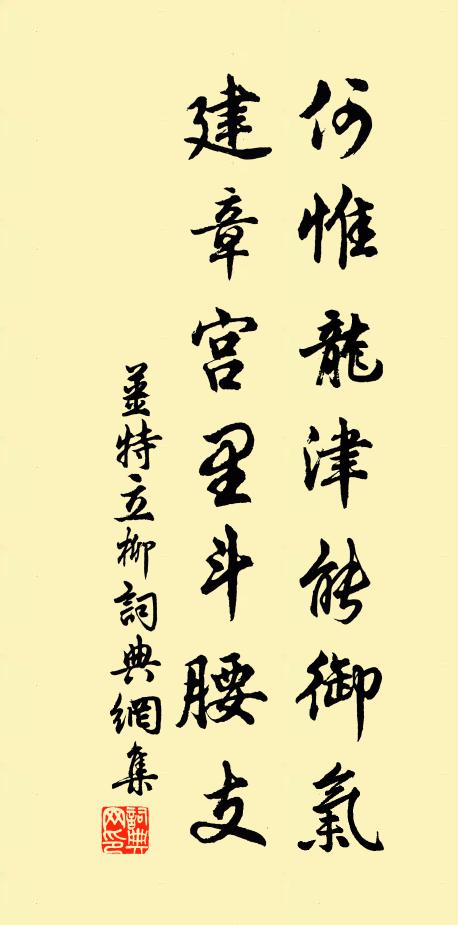 何惟龍津能御氣
建章宮里斗腰支
姜特立柳詞典網集
詞典網印